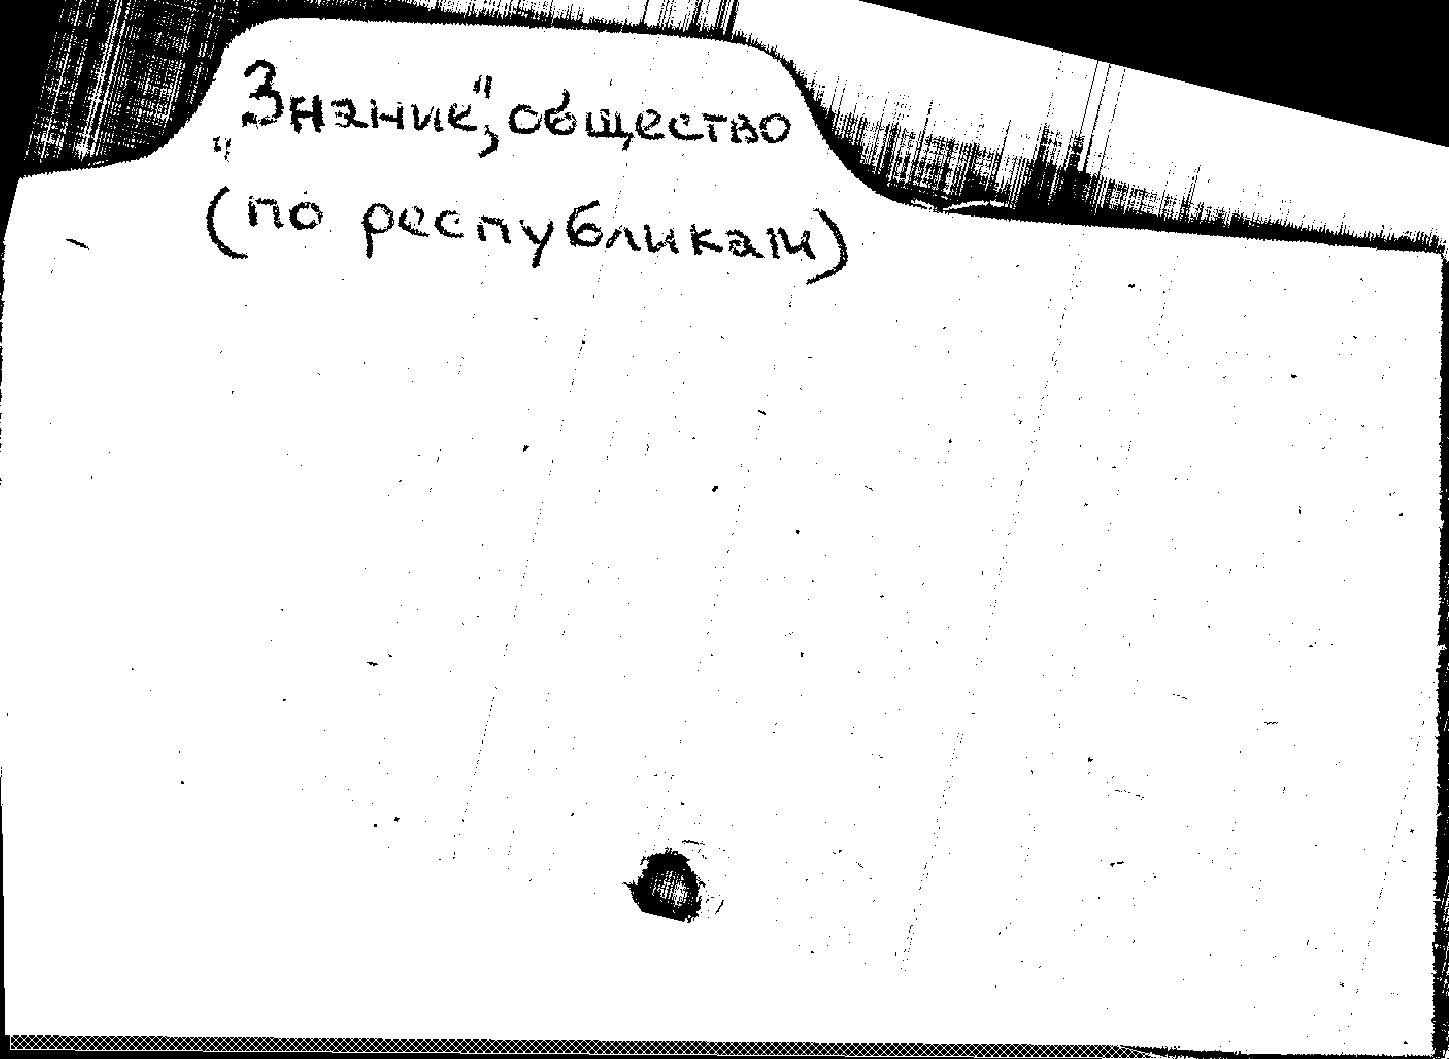 „Знание", общество
(по республикам)